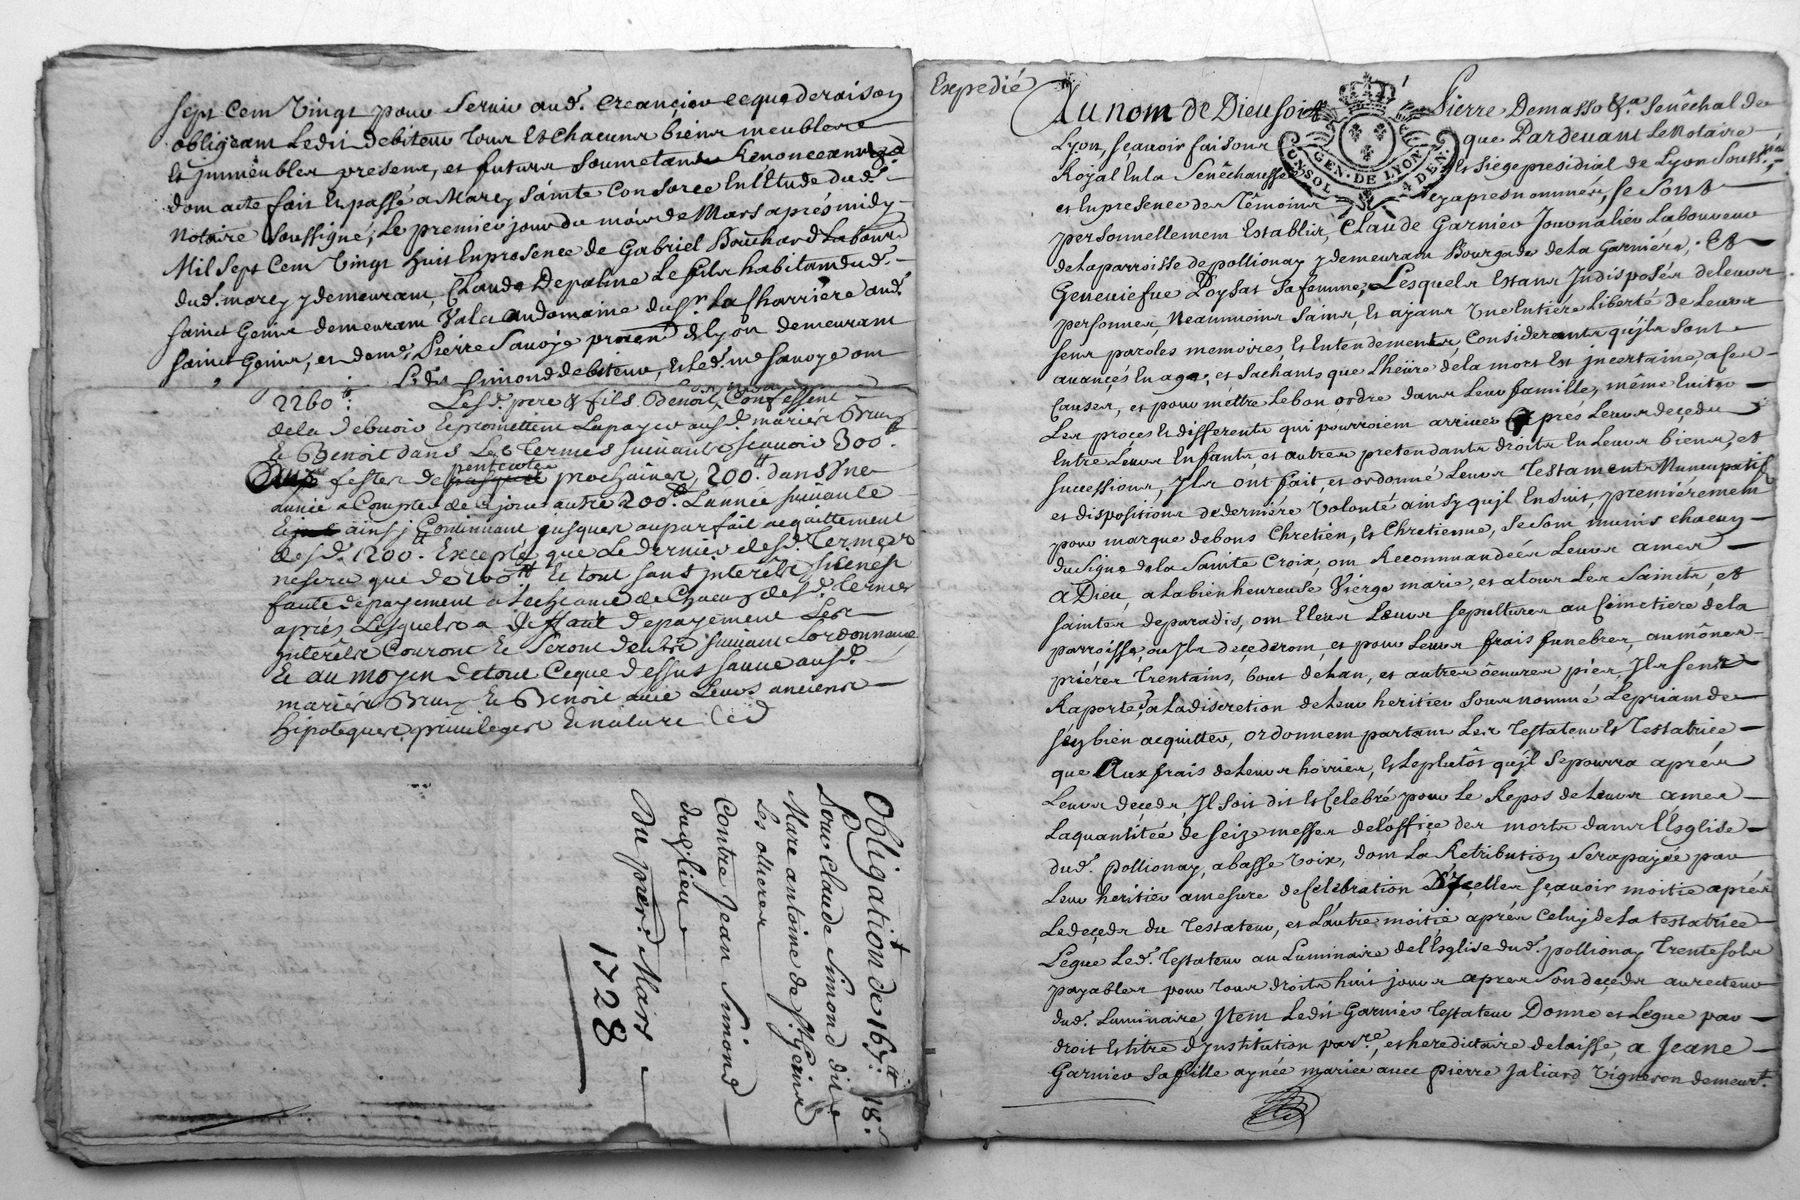 sept Cem Vingt pour Servir aud. Creancier ceque deraison
obligeam Ledit debiteur tour Et Chacuns biens meubles
Et jmmeubles presens, et futurs Soumetants Renonceants
dom acte fait Et passé a Marcy Sainte Consorce En l'Etude dud.
Notaire Soussigné, Le premier jour du mois de Mars aprés midy
Mil Sept Cem Vingt huit En presence de Gabriel Bouchard Labour.
dud. marcy y demeuram, Claude Depaline Le fils habitam dud.
Sainct Genis demeuram Valet au domaine du Sr. La Charrière aud.
Sainct Genis, et de me. Pierre Savoye
demeuram
Simond debiteur, et Led. me Savoye om
2260
Lesd. pere & fils Benoit, Confessent
debvoir Et promettem La payer ausd. mariés Brun
Et Benoit dans Les Termes suivants sçauoir 300
Aux festes de pentecoste prochaines, 200 dans Une
année a Compter de ce jour autre 200 L'année suiuante
Et ainsj Continuant jusques au parfait acquittement
desd. 1200 Excepté que Le dernier desd. Termes
nesera que de 100 Et tout sans jnterests sinest
faute depayement a Lecheance de Chacun desd. termes
aprés Lesquels a deffaut depayement Les
jnterests Couront Et Seront deubs suiuant Lordonnance
Et au moyen detout Ceque dessus sauue ausd.
mariés Brun Et Benoit auec Leurs anciens
hipoteques, priuileges Et nature
Obligation de 167 18
Pour Claude Simond dit
Marc antoine de St. Genis
Les ollieres
Contre Jean Simond
dudit Lieu
Du premier Mars
1728
Expedié
Au nom de Dieu soit Pierre Demasso &a. Senêchal de
Lyon, sçauoir faisons que Pardeuant Le Notaire
Royal En la Senêchaussée Et Siege presidial de Lyon Souss.né
et En presence des Têmoins cy apres nommés, se Sont
GEN. DE LYON
4 DEN.
personnellement Establis, Claude Garnier Journalier Laboureur
de la parroisse de pollionay y demeuram Bourgade de la Garniere, Et
Geneuiefue Poysat Sa femme, Lesquels Estans Jndisposés de leurs
personnes, Neammoins Sains, Et ayans Une Entiére Liberté de Leurs
Sens paroles memoires, Et Entendements Considerants qu'jls sont
auancés En age, et Sachants que L'heure de la mort Est jncertaine, a ces
Causes, et pour mettre Le bon ordre dans Leur famille, même Euiter
Les proces Et differents qui pourroiem arriuer Aprés Leurs decedu
Entre Leurs Enfants, et autres pretendants droits En Leurs biens, et
successions, Jls ont fait, et ordonné Leurs Testaments Nuncupatif
et dispositions de derniére Volonté ainsy qu'jl En suit, premiérement
pour marque de bons Chretien, Et Chretienne, se som munis chacun
du Signe de la Sainte Croix, om Recommandées Leurs ames
a Dieu, a La bien heureuse Viérge marie, et a tous Les Saincts, et
saintes de paradis, om Eleus Leurs sepultures au Cimetiere de la
parroisse, ou Jls decederom, et pour Leurs frais funebres, aumônes
priéres Trentains, bout de han, et autres œuures pies, Jls sen
Raporte, a La discretion de Leur heritier sous nommé Le priam de
s'en bien acquitter, ordonnem partam Les Testateur Et Testatrice
que Aux frais de Leurs hoirries, Et le plutôt qu'jl Se pourra aprés
Leurs decedu, Jl Soit dit Et Celebré pour Le Repos de Leurs ames
La quantitée de seize messes de l'office des morts dans L'Eglise
dud. pollionay, a basse Voix, dom La Retribution Sera payée par
Leur heritier a mesure de Celebration d'Jcelles sçauoir moitié aprés
Le decedu du Testateur, et L'autre moitié aprés Celuy de La testatrice
Legue Led. Testateur au Luminaire de l'Eglise dud. pollionay Trente sols
payables pour tous droits huit jours apres Son decedu au recteur
dud. Luminaire, Jtem Ledit Garnier Testateur Donne et Legue par
droit Et titre d'Jnstitution par.re, et heredictaire delaisse, a Jeane
Garnier Sa fille aynée mariée auec Pierre Jaliard Vigneron demeur.t